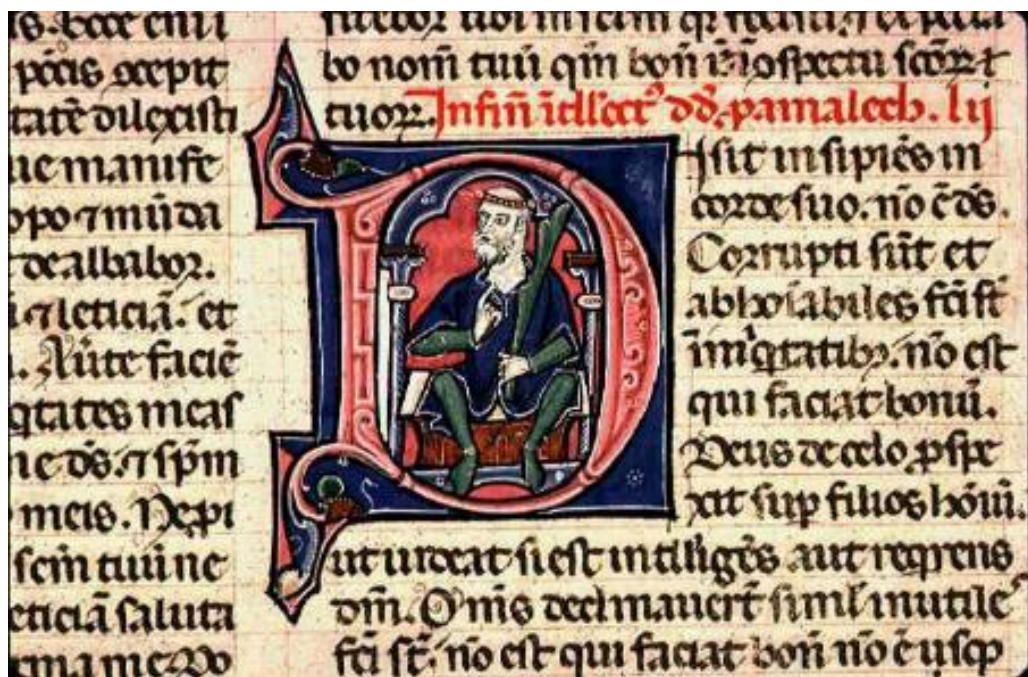 s. Ecce eni
pctis ɔcepit
tatē dilexisti
ue manife
opo ⁊ mūda
dealbabor.
⁊ leticiā. et
. Aūte faciē
qtates meas
ne ds. ⁊ spm
meis. Ne pi
scm tuū ne
eticiā saluta
fitebor tibi in sclm qr fecisti ⁊ expecta
bo nom̄ tuū qm̄ bon̄ ē ī ɔspectu scōꝝ
tuoꝝ. In fin̄ ītellect⁹ dd. p amalech. lij
Dixit insipiēs in
corde suo. nō ē ds.
Corrupti sūt et
abhoīabiles fci st̄
ī iniqtatibꝫ. nō est
qui faciat bonū.
Deus de celo pspe
xit sup filios hoīū.
ut uideat si est intelligēs aut reqrens
dm̄. Om̄s declinauert̄ siml inutile⁹
fci st̄. nō est qui faciat bon̄ nō ē usqꝫ